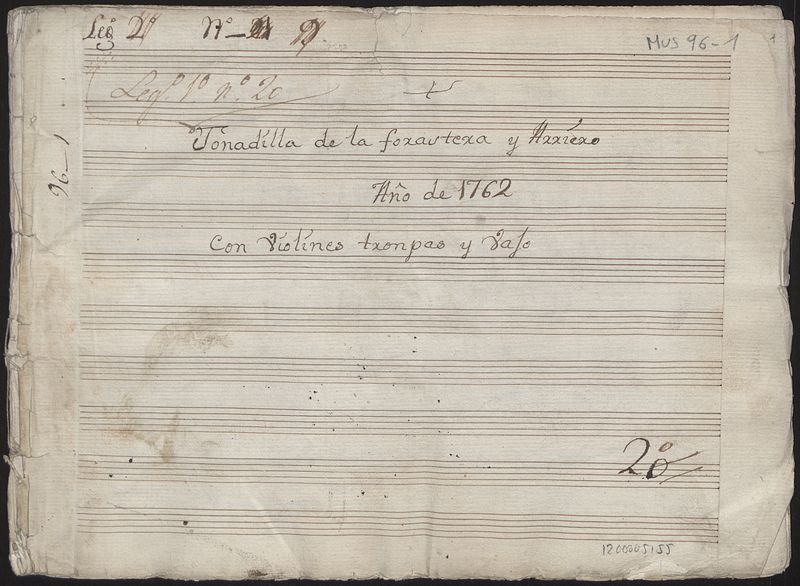 Leg.º 2º Nº
MUS 96-1
1
Legº. 1º nº. 20
96-1
Tonadilla de la forastera y Arriero
Año de 1762
Con Violines tronpas y Vajo
20
1200005155